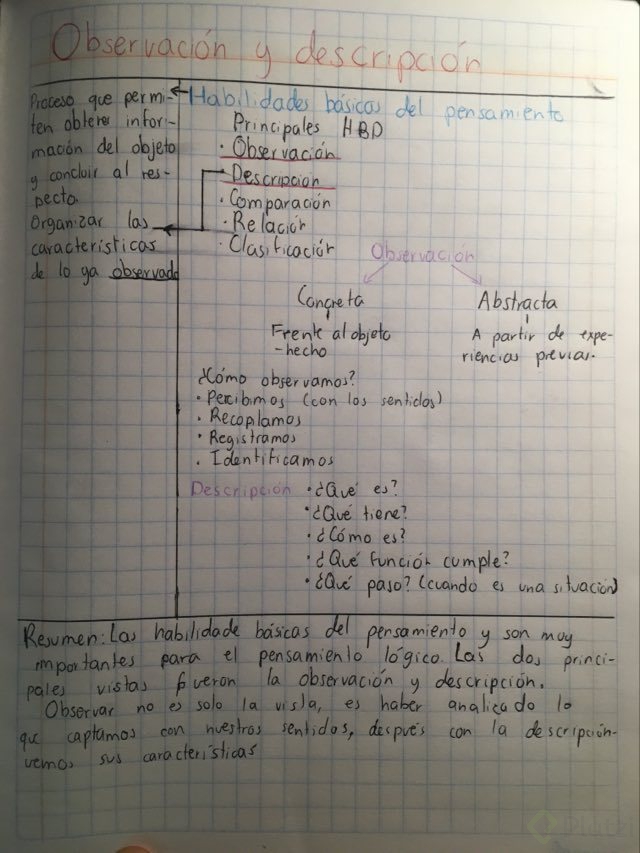 Observación y descripción
Proceso que permi-
ten obtener infor-
mación del objeto
y concluir al res-
pecto.
Organizar las
características
de lo ya observado
Habilidades básicas del pensamiento
Principales HBD
· Observación
· Descripcion
· Comparación
· Relación
· Clasificación
Observación
Concreta
Frente al objeto
-hecho
Abstracta
A partir de expe-
riencias previas.
¿Cómo observamos?
· Percibimos (con los sentidos)
· Recoplamos
· Registramos
· Identificamos
Descripción · ¿Qué es?
· ¿Qué tiene?
· ¿Cómo es?
· ¿Qué función cumple?
· ¿Qué paso? (cuando es una situación)
Resumen: Las habilidade básicas del pensamiento y son muy
importantes para el pensamiento lógico. Las dos princi-
pales vistas fueron la observación y descripción.
Observar no es solo la vista, es haber analicado lo
que captamos con nuestros sentidos, después con la descripción
vemos sus características